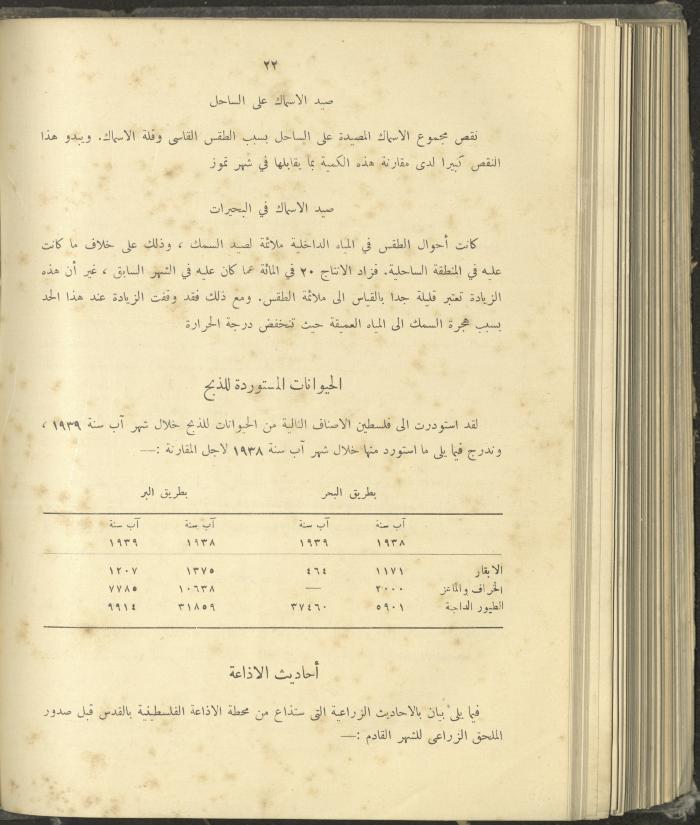 ٢٢
صيد الاسماك على الساحل
نقص مجموع الاسماك المصيدة على الساحل بسبب الطقس القاسى وقلة الاسماك. ويبدو هذا
النقص كبيرا لدى مقارنة هذه الكمية بما يقابلها في شهر تموز
صيد الاسماك في البحيرات
كانت أحوال الطقس في المياه الداخلية ملائمة لصيد السمك ، وذلك على خلاف ما كانت
عليه في المنطقة الساحلية. فزاد الانتاج ٢٠ في المائة عما كان عليه في الشهر السابق ، غير أن هذه
الزيادة تعتبر قليلة جدا بالقياس الى ملائمة الطقس. ومع ذلك فقد وقفت الزيادة عند هذا الحد
بسبب هجرة السمك الى المياه العميقة حيث تنخفض درجة الحرارة
الحيوانات المستوردة للذبح
لقد استودرت الى فلسطين الاصناف التالية من الحيوانات للذبح خلال شهر آب سنة ١٩٣٩ ،
وندرج فيما يلى ما استورد منها خلال شهر آب سنة ١٩٣٨ لاجل المقارنة :—
بطريق البحر بطريق البر
آب سنة آب سنة آب سنة آب سنة
١٩٣٨ ١٩٣٩ ١٩٣٨ ١٩٣٩
الابقار ١١٧١ ٤٦٤ ١٣٧٥ ١٢٠٧
الخراف والماعز ٢٠٠٠ — ١٠٦٣٨ ٧٧٨٥
الطيور الداجنة ٥٩٠١ ٣٧٤٦٠ ٣١٨٥٩ ٩٩١٤
أحاديث الاذاعة
فيما يلى بيان بالاحاديث الزراعية التى ستذاع من محطة الاذاعة الفلسطينية بالقدس قبل صدور
الملحق الزراعى للشهر القادم :—